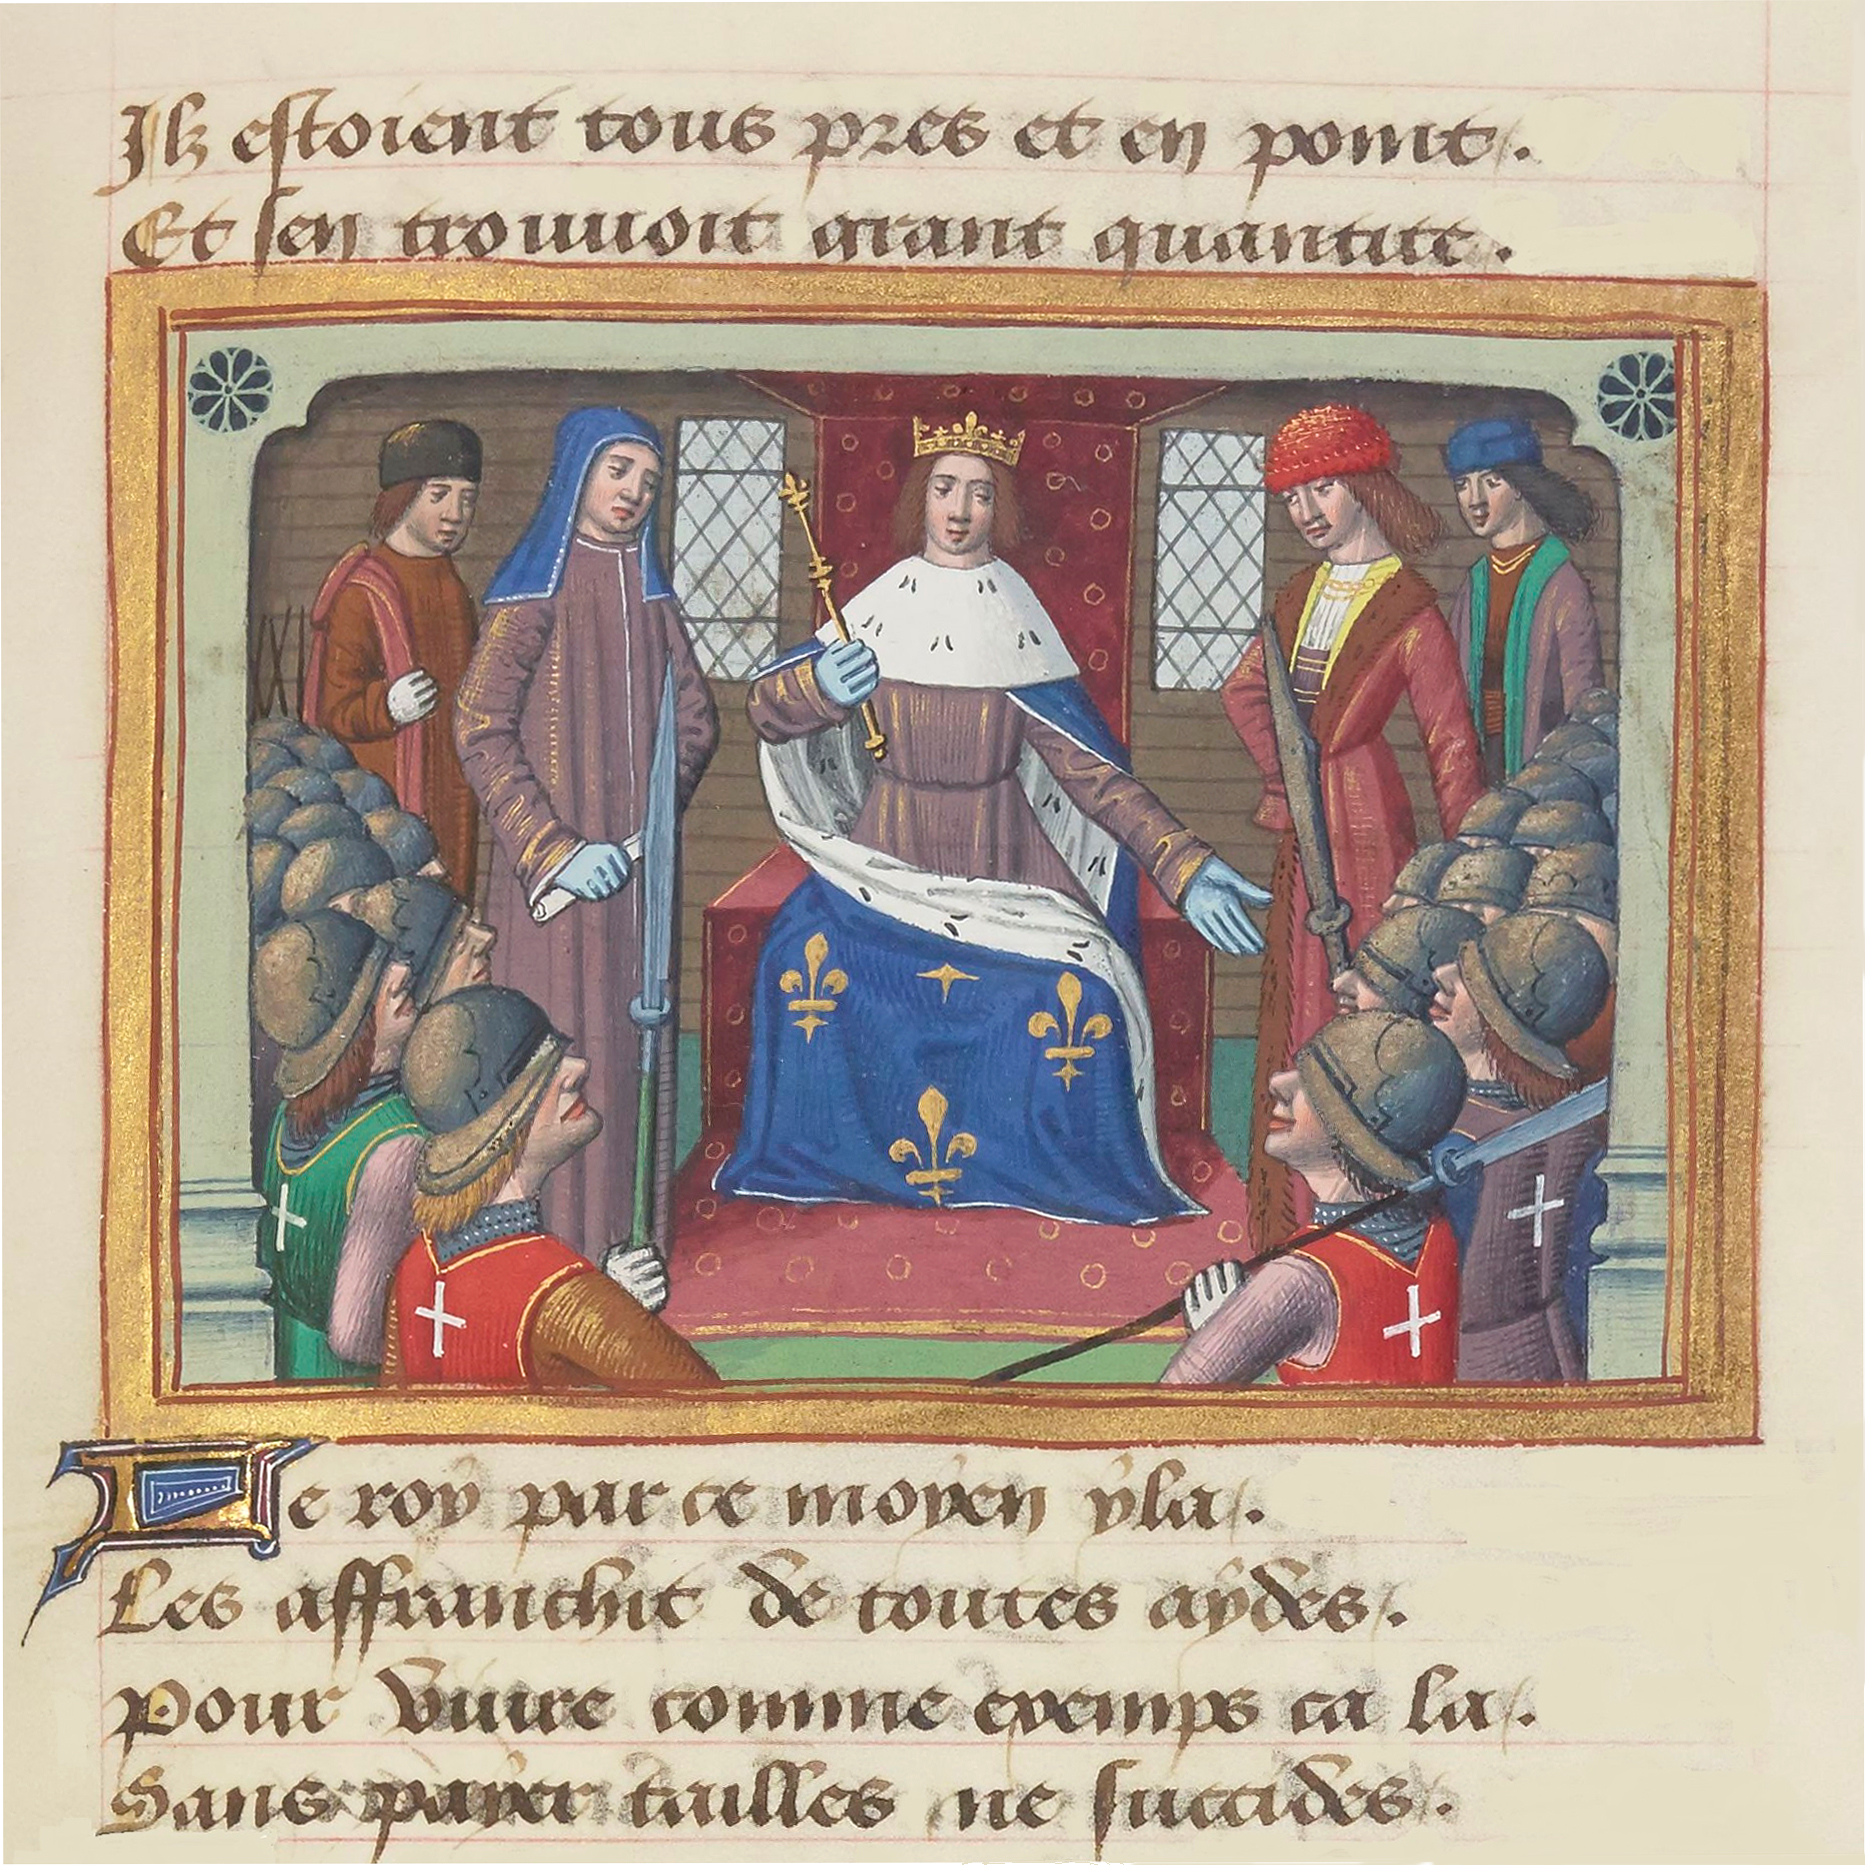 Ilz estoient tous pres et en point.
Et sen trouvoit grant quantite.
Le roy par ce moyen yla.
Les affranchit de toutes aydes.
Pour vivre comme exemps ca la.
Sans payer tailles ne succides.